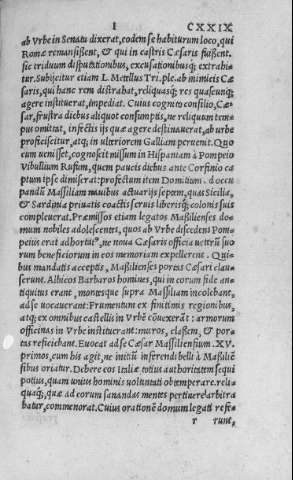 I CXXIX
ab Vrbe in Senatu dixerat, eodem se habiturum loco, qui
Romæ remansißent, & qui in castris Cæsaris fuißent.
sic triduum disputationibus, excusationibusq; extrahi⸗
tur. Subijcitur etiam L. Metellus Tri. ple. ab inimicis Cæ
saris, qui hanc rem distrahat, reliquasq; res quascunq;
agere instituerat, impediat. Cuius cognito consilio, Cæ⸗
sar, frustra diebus aliquot consumptis, ne reliquum tem⸗
pus omittat, infectis ijs quæ agere destinauerat, ab urbe
proficiscitur, atq; in ulteriorem Galliam peruenit. Quo
cum uenisset, cognoscit missum in Hispaniam à Pompeio
Vibullium Rufum, quem paucis diebus ante Corfinio ca
ptum ipse dimiserat: profectum item Domitium ad occu
pandā Massiliam nauibus actuarijs septem, quas Sicilia,
& Sardinia priuatis coactis seruis libertisq; colonis suis
compleuerat. Præmissos etiam legatos Maßilienses do⸗
mum nobiles adolescentes, quos ab Vrbe discedens Pom
peius erat adhortatus, ne noua Cæsaris officia ueterū suo
rum beneficiorum in eos memoriam expellerent. Qui⸗
bus mandatis acceptis, Maßilienses portas Cæsari clau⸗
serunt. Albicos Barbaros homines, qui in eorum fide an
tiquitus erant, montesque supra Massiliam incolebant,
ad se uocauerant: Frumentum ex finitimis regionibus,
atq; ex omnibus castellis in Vrbē cōuexerāt: armorum
officinas in Vrbe instituerant: muros, classem, & por⸗
tas reficiebant. Euocat ad se Cæsar Massiliensium .XV.
primos, cum his agit, ne initiū inferendi belli à Maßiliē
sibus oriatur. Debere eos Italiæ totius authoritatem sequi
potius, quàm unius hominis uoluntati obtemperare. reli⸗
quaq; quæ ad eorum sanandas mentes pertinere arbitra
batur, commemorat. Cuius orationē domum legati refe⸗
r runt,